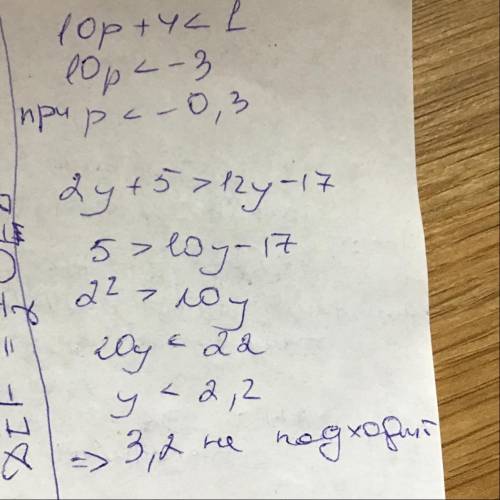 10p + 4 < 1
10p < -3
при p < -0,3
2y + 5 > 12y - 17
5 > 10y - 17
22 > 10y
10y < 22
y < 2,2
=> 3,2 не подходит